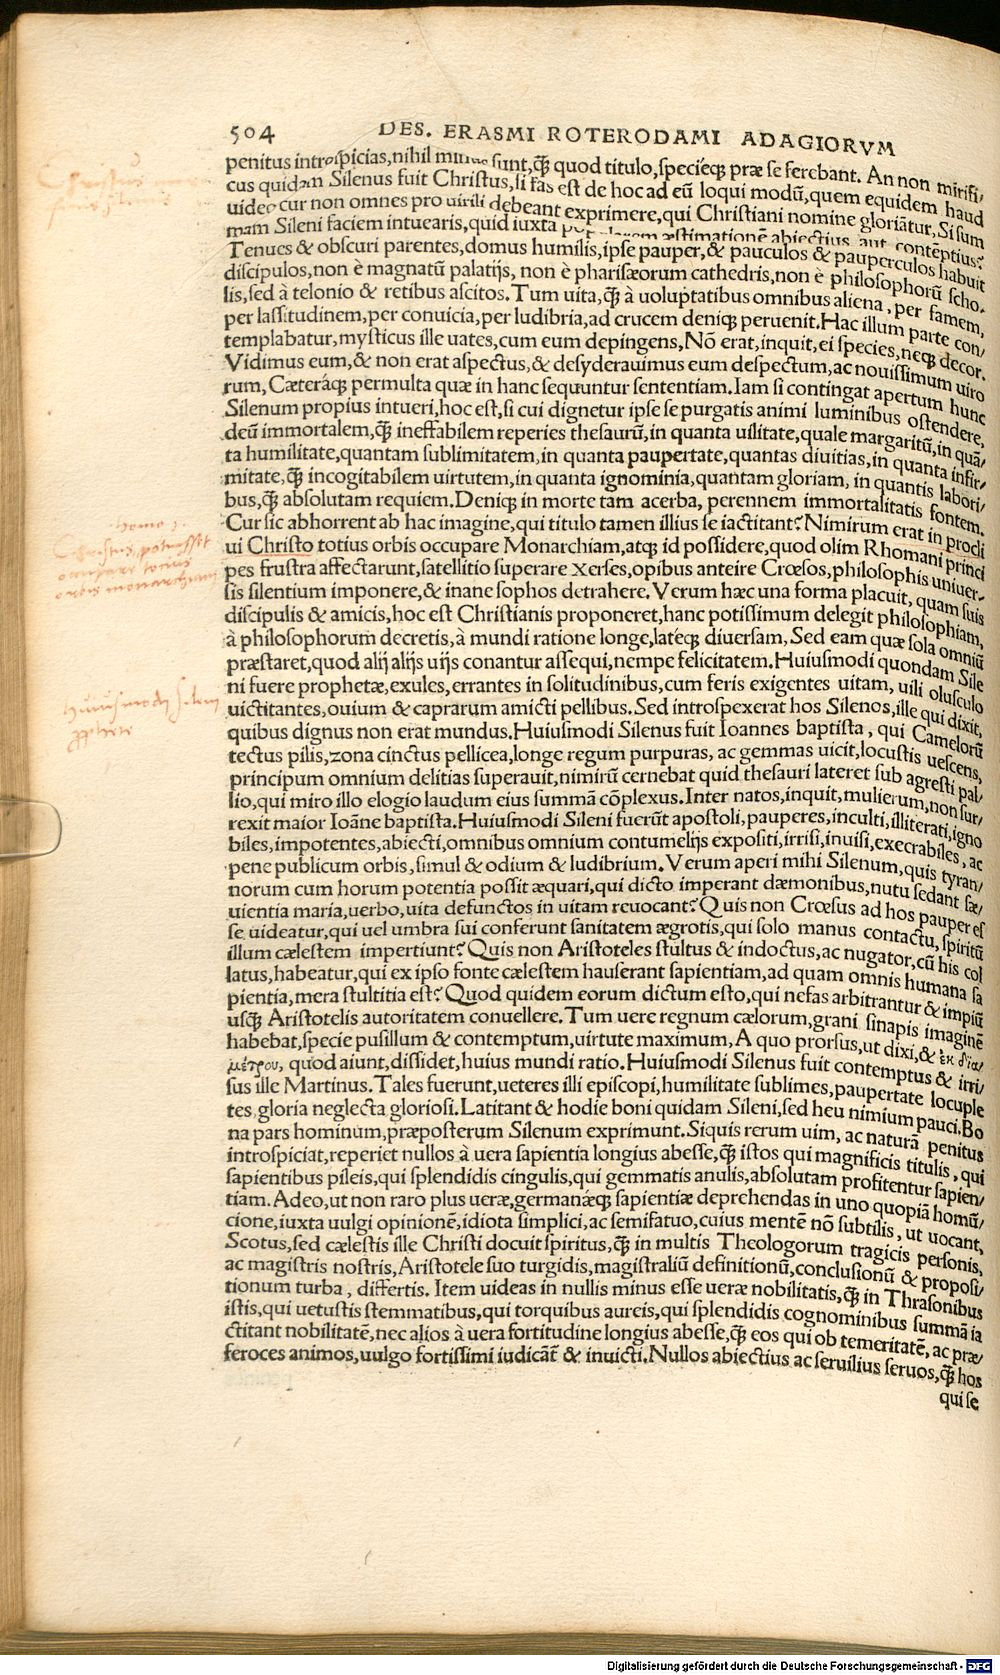 504 DES. ERASMI ROTERODAMI ADAGIORVM
penitus introspicias, nihil minus sunt, q̃ quod titulo, specieq; præ se ferebant. An non mirifi/
cus quidam Silenus fuit Christus, si fas est de hoc ad eũ loqui modũ, quem equidem haud
uideo cur non omnes pro uirili debeant exprimere, qui Christiani nomine gloriãtur. Si sum
mam Sileni faciem intuearis, quid iuxta popularem æstimationẽ abiectius, aut contẽptius?
Tenues & obscuri parentes, domus humilis, ipse pauper, & pauculos & pauperculos habuit
discipulos, non è magnatũ palatijs, non è pharisæorum cathedris, non è philosophorũ scho,
lis, sed à telonio & retibus ascitos. Tum uita, q̃ à uoluptatibus omnibus aliena, per famem,
per lassitudinem, per conuicia, per ludibria, ad crucem deniq; peruenit. Hac illum parte con/
templabatur, mysticus ille uates, cum eum depingens, Nõ erat, inquit, ei species, neq; decor.
Vidimus eum, & non erat aspectus, & desyderauimus eum despectum, ac nouissimum uiro
rum, Cæteráq; permulta quæ in hanc sequuntur sententiam. Iam si contingat apertum hunc
Silenum propius intueri, hoc est, si cui dignetur ipse se purgatis animi luminibus ostendere,
deũ immortalem, q̃ ineffabilem reperies thesaurũ, in quanta uilitate, quale margaritũ, in quã/
ta humilitate, quantam sublimitatem, in quanta paupertate, quantas diuitias, in quanta infir/
mitate, q̃ incogitabilem uirtutem, in quanta ignominia, quantam gloriam, in quantis labori/
bus, q̃ absolutam requiem. Deniq; in morte tam acerba, perennem immortalitatis fontem.
Cur sic abhorrent ab hac imagine, qui titulo tamen illius se iactitant? Nimirum erat in procli
ui Christo totius orbis occupare Monarchiam, atq; id possidere, quod olim Rhomani princi
pes frustra affectarunt, satellitio superare Xerses, opibus anteire Crœsos, philosophis uniuer-
sis silentium imponere, & inane sophos detrahere. Verum hæc una forma placuit, quam suis
discipulis & amicis, hoc est Christianis proponeret, hanc potissimum delegit philosophiam,
à philosophorum decretis, à mundi ratione longe, lateq; diuersam, Sed eam quæ sola omniũ
præstaret, quod alij alijs uijs conantur assequi, nempe felicitatem. Huiusmodi quondam Sile
ni fuere prophetæ, exules, errantes in solitudinibus, cum feris exigentes uitam, uili olusculo
uictitantes, ouium & caprarum amicti pellibus. Sed introspexerat hos Silenos, ille qui dixit,
quibus dignus non erat mundus. Huiusmodi Silenus fuit Ioannes baptista, qui Camelorũ
tectus pilis, zona cinctus pellicea, longe regum purpuras, ac gemmas uicit, locustis uescens,
principum omnium delitias superauit, nimirũ cernebat quid thesauri lateret sub agresti pal/
lio, qui miro illo elogio laudum eius summã cõplexus. Inter natos, inquit, mulierum, non sur/
rexit maior Ioãne baptista. Huiusmodi Sileni fuerũt apostoli, pauperes, inculti, illiterati, igno
biles, impotentes, abiecti, omnibus omnium contumelijs expositi, irrisi, inuisi, execrabiles, ac
pene publicum orbis, simul & odium & ludibrium. Verum aperi mihi Silenum, quis tyran/
norum cum horum potentia possit æquari, qui dicto imperant dæmonibus, nutu sedant sæ/
uientia maria, uerbo, uita defunctos in uitam reuocant? Quis non Crœsus ad hos pauper es
se uideatur, qui uel umbra sui conferunt sanitatem ægrotis, qui solo manus contactu, spiritũ
illum cælestem impertiunt? Quis non Aristoteles stultus & indoctus, ac nugator, cũ his col
latus, habeatur, qui ex ipso fonte cælestem hauserant sapientiam, ad quam omnis humana sa
pientia, mera stultitia est? Quod quidem eorum dictum esto, qui nefas arbitrantur & impiũ
usq; Aristotelis autoritatem conuellere. Tum uere regnum cælorum, grani sinapis imaginẽ
habebat, specie pusillum & contemptum, uirtute maximum, A quo prorsus, ut dixi, & ἐκ δια/
μέτρου, quod aiunt, dissidet, huius mundi ratio. Huiusmodi Silenus fuit contemptus & irri/
sus ille Martinus. Tales fuerunt, ueteres illi episcopi, humilitate sublimes, paupertate locuple
tes, gloria neglecta gloriosi. Latitant & hodie boni quidam Sileni, sed heu nimium pauci. Bo
na pars hominum, præposterum Silenum exprimunt. Siquis rerum uim, ac naturã penitus
introspiciat, reperiet nullos à uera sapientia longius abesse, q̃ istos qui magnificis titulis, qui
sapientibus pileis, qui splendidis cingulis, qui gemmatis anulis, absolutam profitentur sapien/
tiam. Adeo, ut non raro plus ueræ, germanæq; sapientiæ deprehendas in uno quopiã homũ/
cione, iuxta uulgi opinionẽ, idiota simplici, ac semifatuo, cuius mentẽ nõ subtilis, ut uocant,
Scotus, sed cælestis ille Christi docuit spiritus, q̃ in multis Theologorum tragicis personis,
ac magistris nostris, Aristotele suo turgidis, magistraliũ definitionũ, conclusionũ & proposi/
tionum turba, differtis. Item uideas in nullis minus esse ueræ nobilitatis, q̃ in Thrasonibus
istis, qui uetustis stemmatibus, qui torquibus aureis, qui splendidis cognominibus summã ia
ctitant nobilitatẽ, nec alios à uera fortitudine longius abesse, q̃ eos qui ob temeritatẽ, ac præ/
feroces animos, uulgo fortissimi iudicãt & inuicti. Nullos abiectius ac seruilius seruos, q̃ hos
qui se
Christus
Christus potuisset
occupare totius
orbis monarchiam
Huiusmodi Sileni
Digitalisierung gefördert durch die Deutsche Forschungsgemeinschaft - DFG